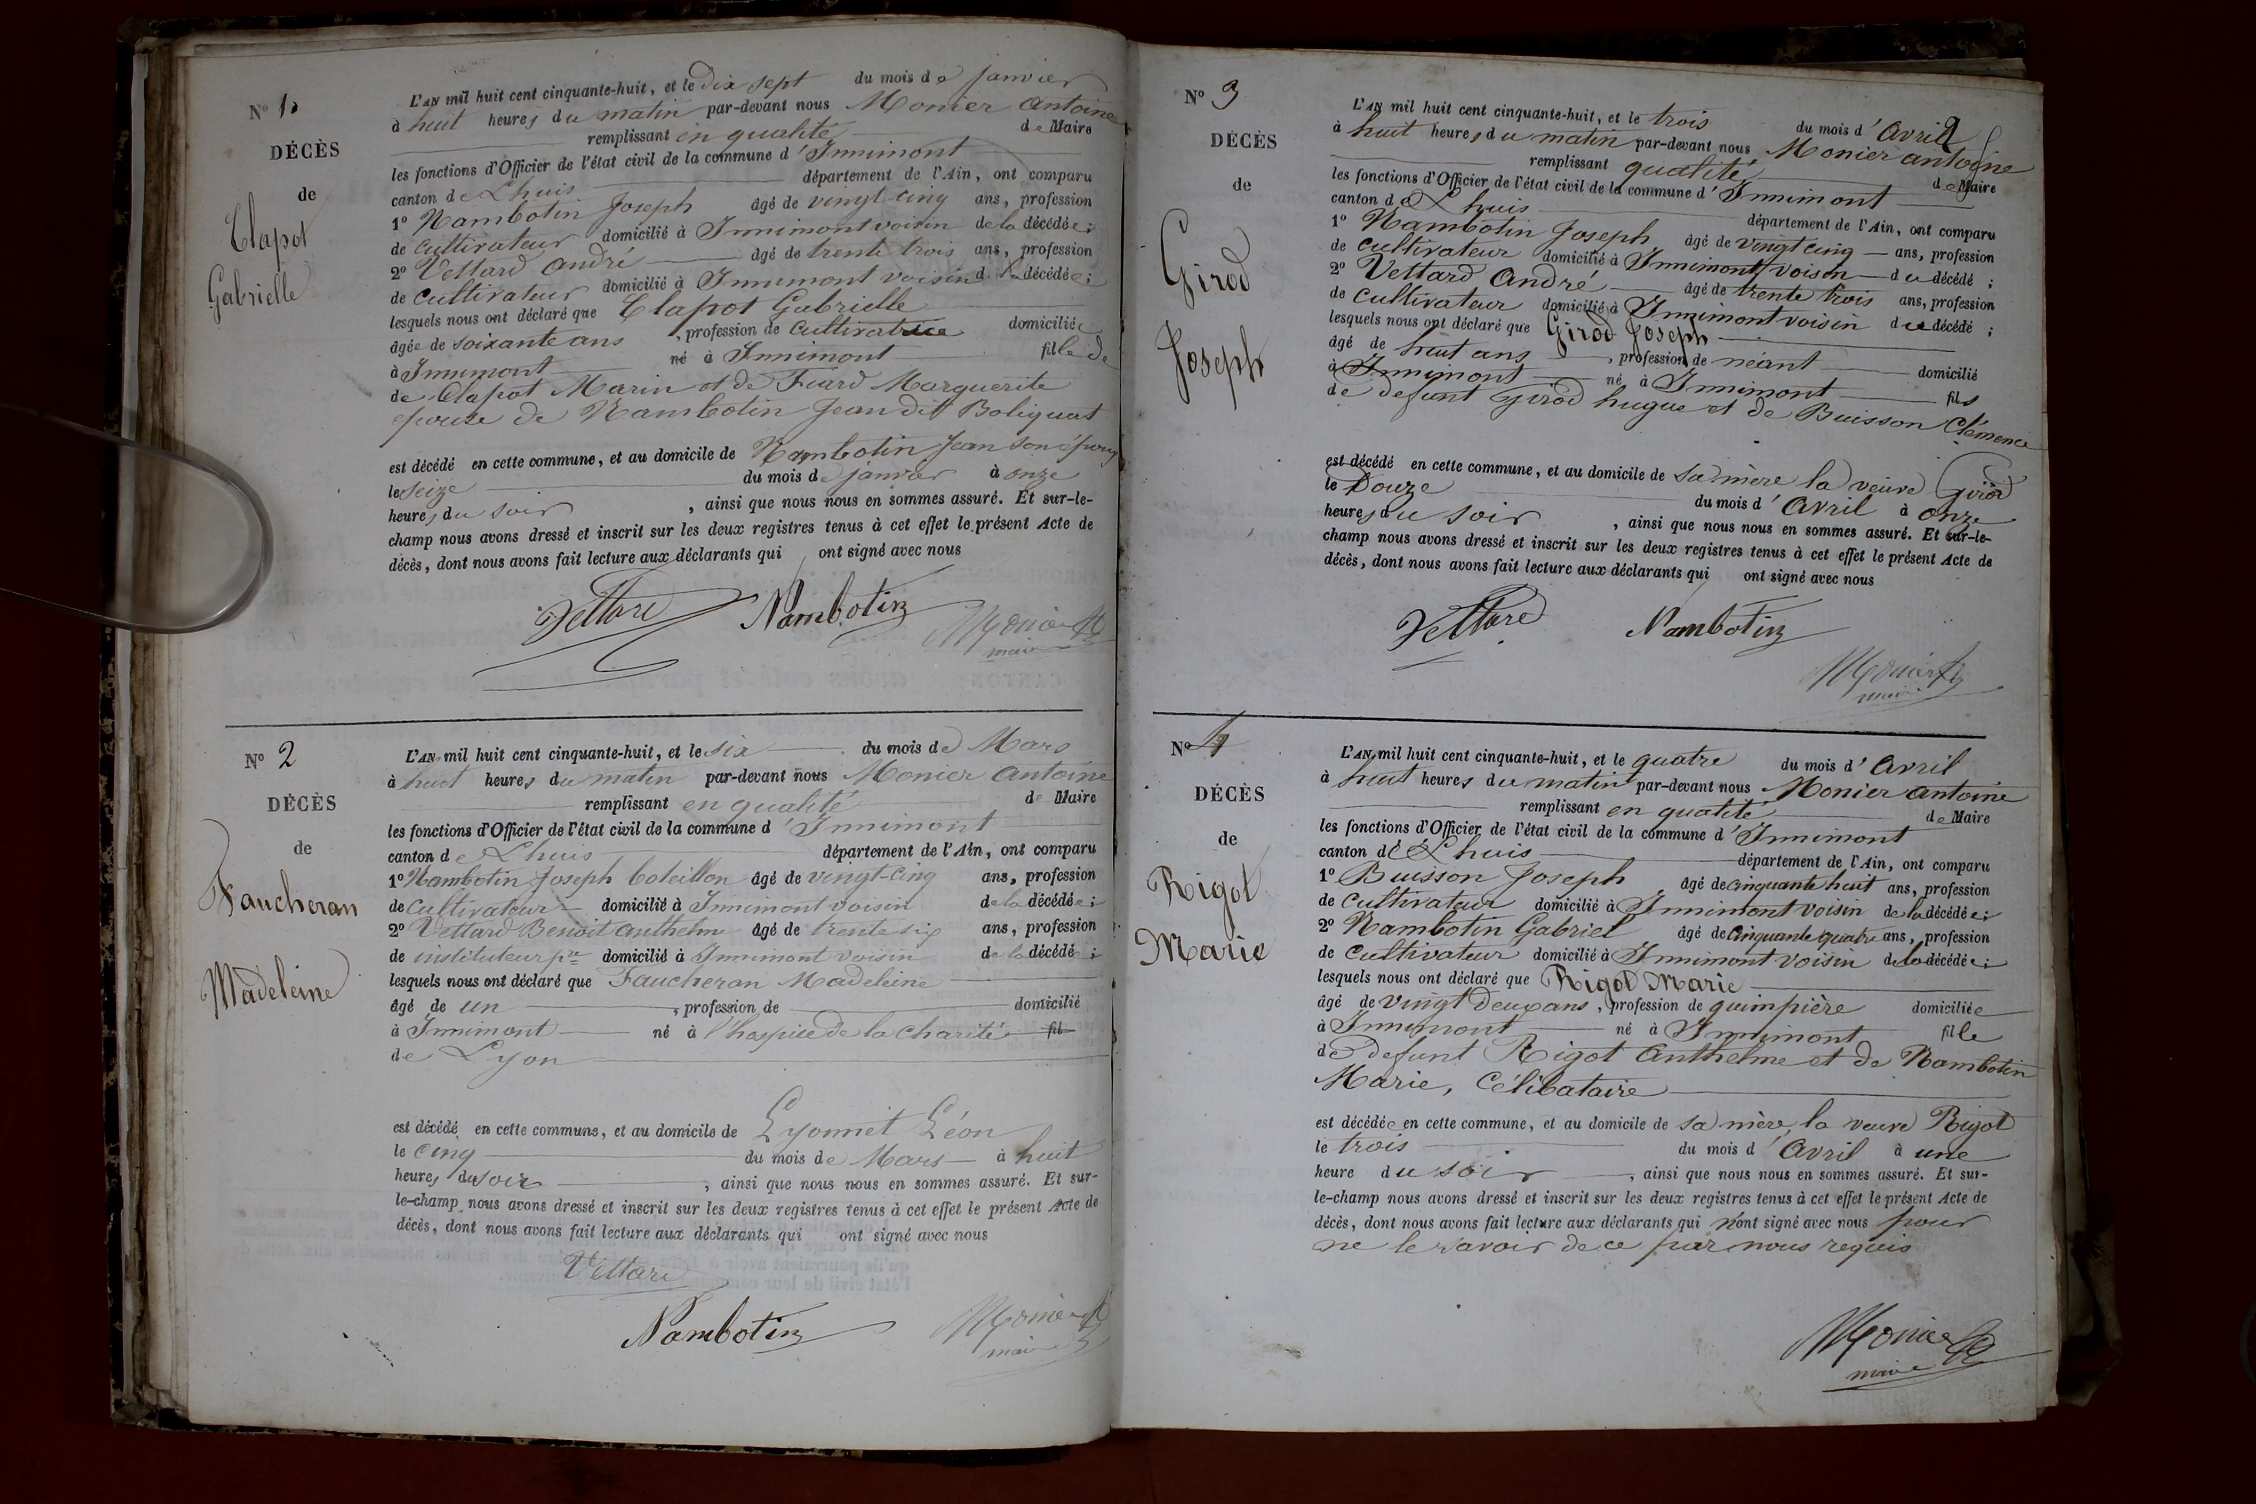 N° 1
DÉCÈS
de
Clapot
Gabrielle
L'AN mil huit cent cinquante-huit, et le dix sept du mois de janvier
à huit heures du matin par-devant nous Monier Antoine
remplissant en qualité de Maire
les fonctions d'Officier de l'état civil de la commune d'Innimont
canton de Lhuis département de l'Ain, ont comparu
1° Nambotin Joseph âgé de vingt-cinq ans, profession
de cultivateur domicilié à Innimont voisin de la décédée;
2° Vettard André âgé de trente trois ans, profession
de cultivateur domicilié à Innimont voisin de la décédée;
lesquels nous ont déclaré que Clapot Gabrielle
âgée de soixante ans, profession de cultivatrice domiciliée
à Innimont né à Innimont fille de
de Clapot Marin et de Fiard Marguerite
épouse de Nambotin Jean dit Boliquat
est décédé en cette commune, et au domicile de Nambotin Jean son époux
le seize du mois de janvier à onze
heures du soir, ainsi que nous nous en sommes assuré. Et sur-le-
champ nous avons dressé et inscrit sur les deux registres tenus à cet effet le présent Acte de
décès, dont nous avons fait lecture aux déclarants qui ont signé avec nous
Vettard Nambotin Monier
maire
N° 2
DÉCÈS
de
Faucheran
Madeleine
L'AN mil huit cent cinquante-huit, et le six du mois de Mars
à huit heures du matin par-devant nous Monier Antoine
remplissant en qualité de Maire
les fonctions d'Officier de l'état civil de la commune d'Innimont
canton de Lhuis département de l'Ain, ont comparu
1° Nambotin Joseph Coteillon âgé de vingt-cinq ans, profession
de cultivateur domicilié à Innimont voisin de la décédée;
2° Vettard Benoit Anthelme âgé de trente six ans, profession
de instituteur pre domicilié à Innimont voisin de la décédée;
lesquels nous ont déclaré que Faucheran Madeleine
âgé de un, profession de domicilié
à Innimont né à l'hospice de la charité fil
de Lyon
est décédé en cette commune, et au domicile de Lyonnet Léon
le cinq du mois de Mars à huit
heures du soir, ainsi que nous nous en sommes assuré. Et sur-
le-champ nous avons dressé et inscrit sur les deux registres tenus à cet effet le présent Acte de
décès, dont nous avons fait lecture aux déclarants qui ont signé avec nous
Vettard
Nambotin Monier
maire
N° 3
DÉCÈS
de
Girod
Joseph
L'AN mil huit cent cinquante-huit, et le trois du mois d'Avril
à huit heures du matin par-devant nous Monier Antoine
remplissant qualité de Maire
les fonctions d'Officier de l'état civil de la commune d'Innimont
canton de Lhuis département de l'Ain, ont comparu
1° Nambotin Joseph âgé de vingt cinq ans, profession
de cultivateur domicilié à Innimont voisin du décédé;
2° Vettard André âgé de trente trois ans, profession
de cultivateur domicilié à Innimont voisin du décédé;
lesquels nous ont déclaré que Girod Joseph
âgé de huit ans, profession de néant domicilié
à Innimont né à Innimont fils
de defunt Girod hugue et de Buisson Clémence
est décédé en cette commune, et au domicile de sa mère la veuve Girod
le Douze du mois d'Avril à onze
heures du soir, ainsi que nous nous en sommes assuré. Et sur-le-
champ nous avons dressé et inscrit sur les deux registres tenus à cet effet le présent Acte de
décès, dont nous avons fait lecture aux déclarants qui ont signé avec nous
Vettard Nambotin
Monier
maire
N° 4
DÉCÈS
de
Rigot
Marie
L'AN mil huit cent cinquante-huit, et le quatre du mois d'Avril
à huit heures du matin par-devant nous Monier Antoine
remplissant en qualité de Maire
les fonctions d'Officier de l'état civil de la commune d'Innimont
canton de Lhuis département de l'Ain, ont comparu
1° Buisson Joseph âgé de cinquante huit ans, profession
de cultivateur domicilié à Innimont voisin de la décédée;
2° Nambotin Gabriel âgé de cinquante quatre ans, profession
de cultivateur domicilié à Innimont voisin de la décédée;
lesquels nous ont déclaré que Rigot Marie
âgé de vingt Deux ans, profession de guimpière domiciliée
à Innimont né à Innimont fille
de defunt Rigot Anthelme et de Nambotin
Marie, Célibataire
est décédée en cette commune, et au domicile de sa mère, la veuve Rigot
le trois du mois d'Avril à une
heure du soir, ainsi que nous nous en sommes assuré. Et sur-
le-champ nous avons dressé et inscrit sur les deux registres tenus à cet effet le présent Acte de
décès, dont nous avons fait lecture aux déclarants qui n'ont signé avec nous pour
ne le savoir de ce par nous requis
Monier
maire